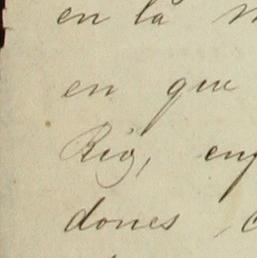 en la
en que
Rio,
dones